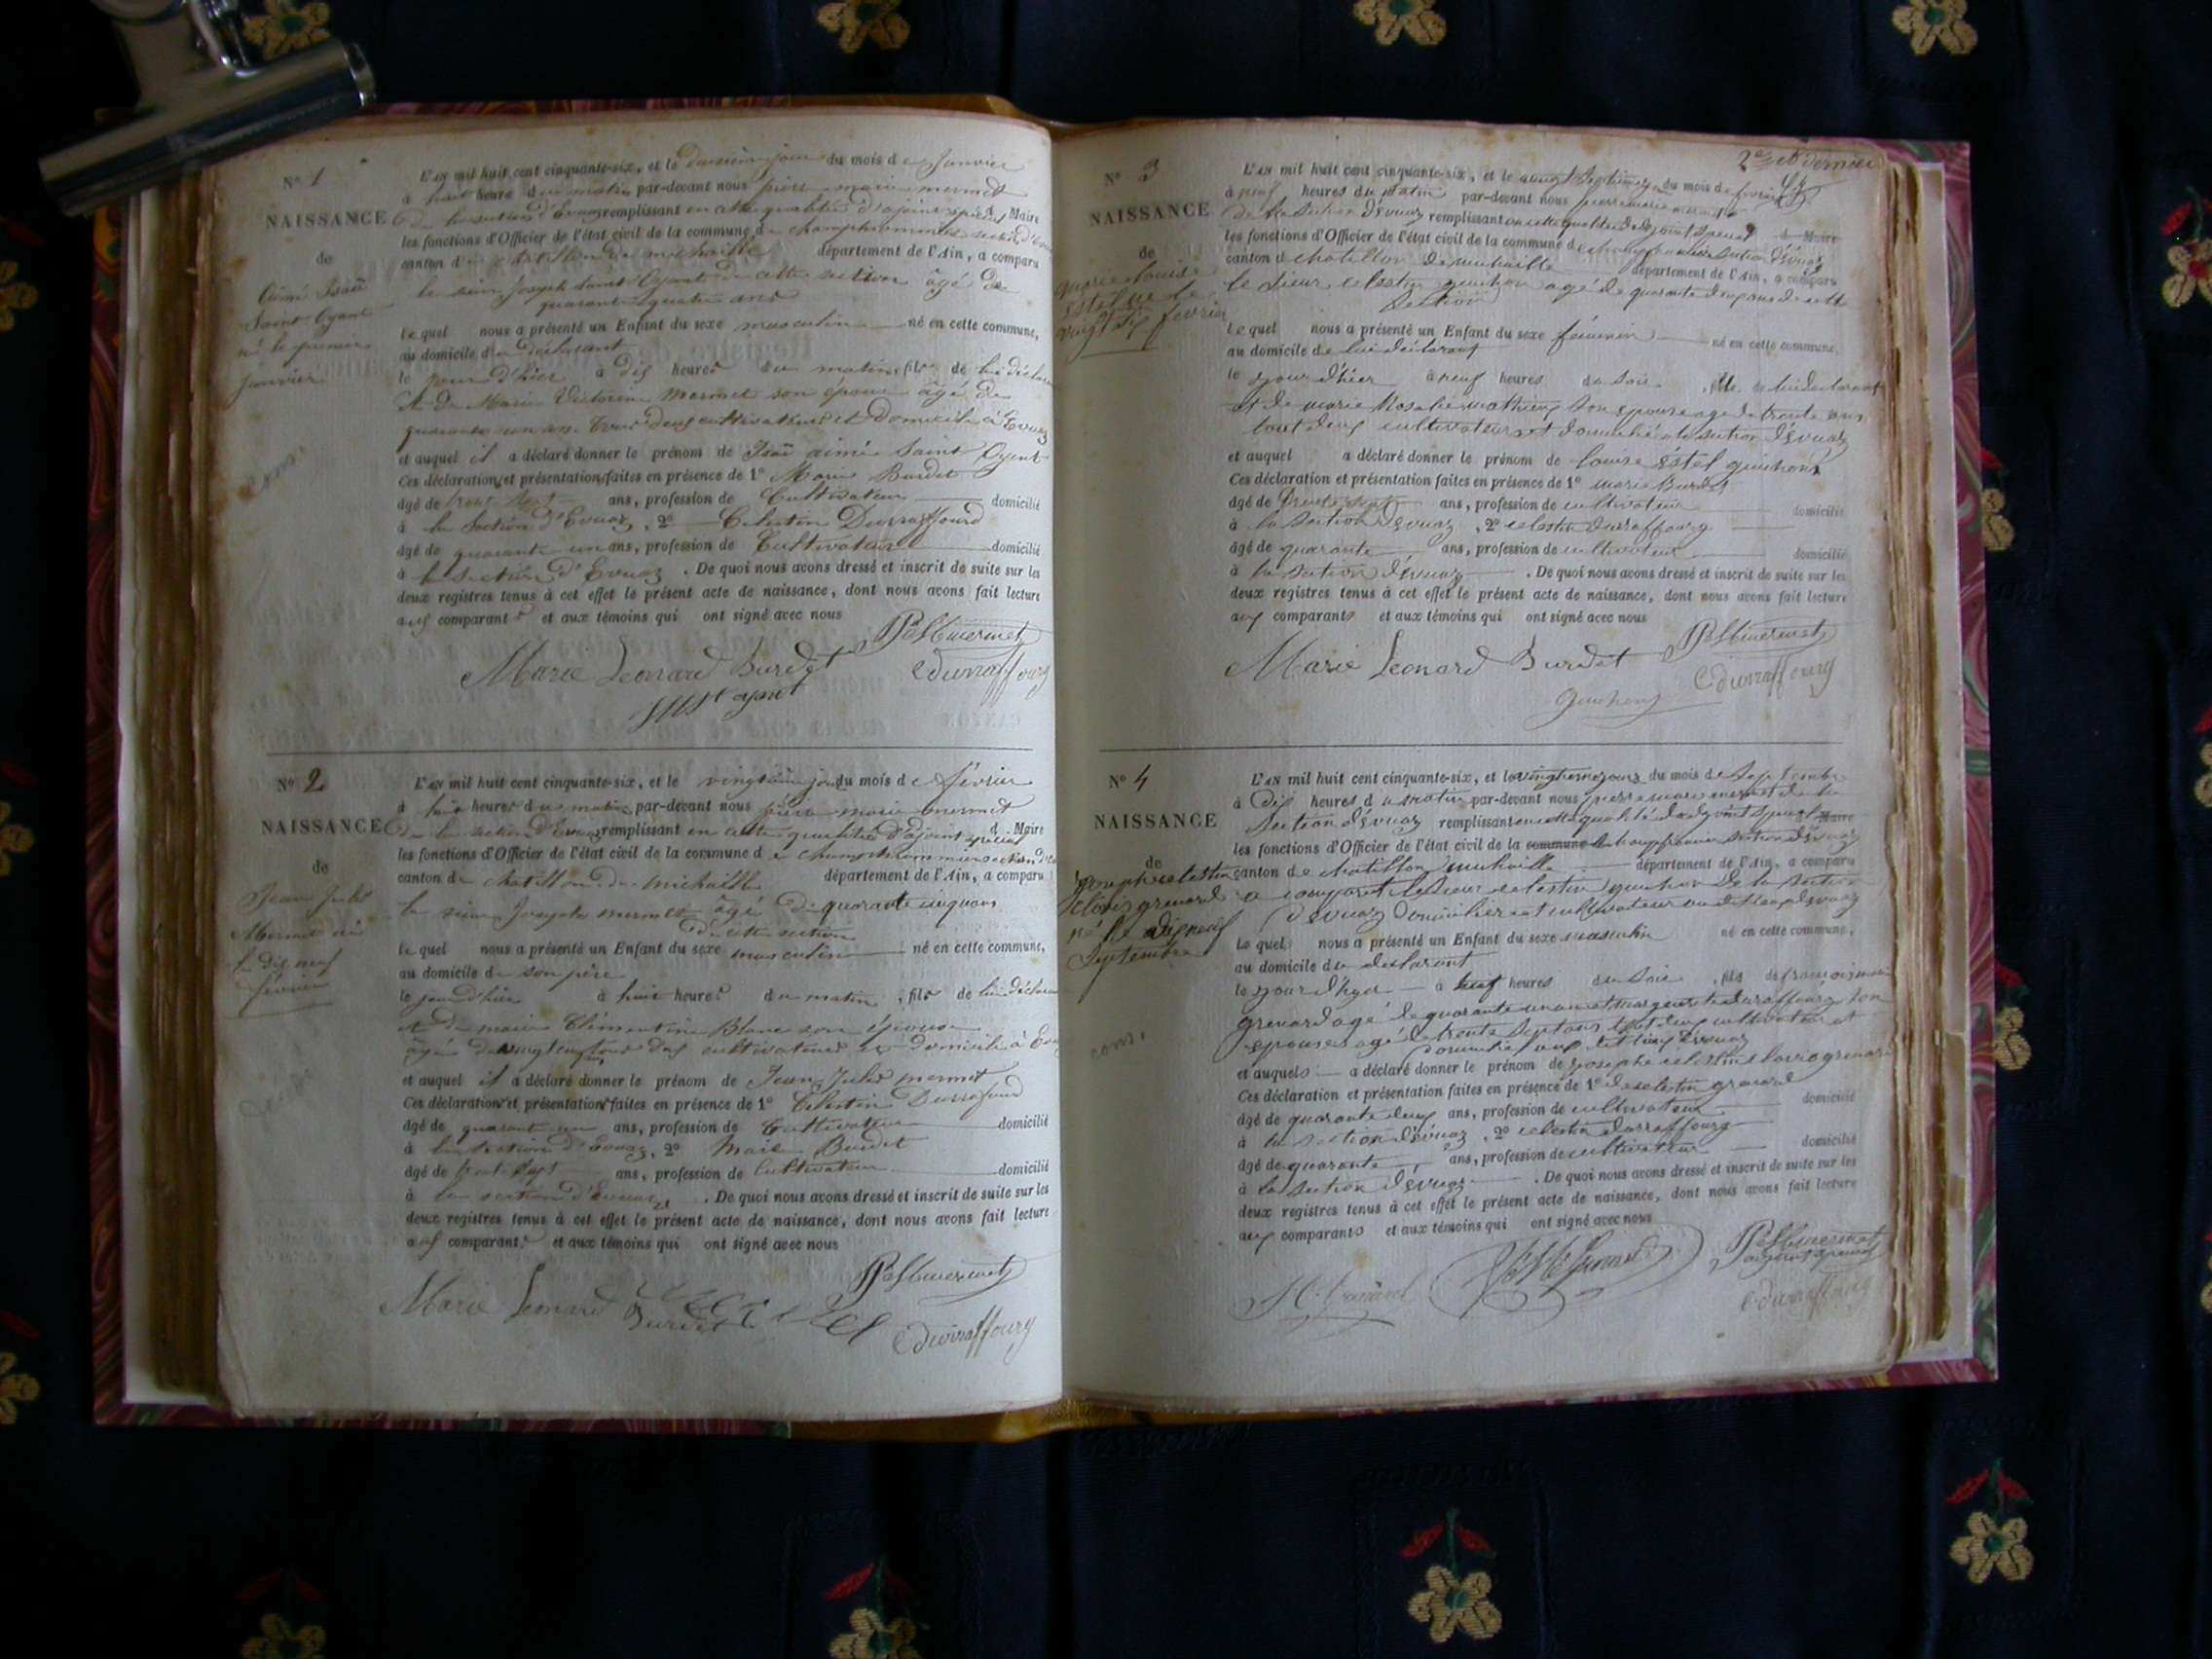 Nº 1
NAISSANCE
de
Aimé Isaï
Saint Oyant
né le premier
Janvier
L'AN mil huit cent cinquante-six, et le deuxième jour du mois de Janvier
à huit heure du matin par-devant nous pierre marie mermet
de la section d'Evuaz remplissant en cette qualité d'ajoint spécial d Maire
les fonctions d'Officier de l'état civil de la commune de champfromier section d'Evuaz
canton de chatillon de michaille département de l'Ain, a comparu
le sieur Joseph Saint Oyant de cette section âgé de
quarante quatre ans
lequel nous a présenté un Enfant du sexe masculin né en cette commune,
au domicile du déclarant
le jour d'hier à dix heures du matin, fils de lui déclarant
et de Marie Victorine Mermet son épouse âgé de
quarante un an tous deux cultivateurs et domicilié à Evuaz
et auquel il a déclaré donner le prénom de Isaï aimé Saint Oyant
Ces déclaration et présentation faites en présence de 1º Marie Burdet
âgé de trente sept ans, profession de Cultivateur domicilié
à la section d'Evuaz, 2º Celestin Durraffourd
âgé de quarante un ans, profession de Cultivateur domicilié
à la section d'Evuaz. De quoi nous avons dressé et inscrit de suite sur les
deux registres tenus à cet effet le présent acte de naissance, dont nous avons fait lecture
aux comparants et aux témoins qui ont signé avec nous
Marie Leonard Burdet
Nº 2
NAISSANCE
de
Jean Jules
Mermet né
le dix neuf
février
L'AN mil huit cent cinquante-six, et le vingtième jour du mois de février
à huit heures du matin par-devant nous pierre marie mermet
de la section d'Evuaz remplissant en cette qualité d'ajoint spécial d Maire
les fonctions d'Officier de l'état civil de la commune de champfromier section d'Evuaz
canton de chatillon de michaille département de l'Ain, a comparu
le sieur Joseph mermet âgé de quarante cinq ans
de cette section
lequel nous a présenté un Enfant du sexe masculin né en cette commune,
au domicile de son père
le jour d'hier à huit heures du matin, fils de lui déclarant
et de marie Clémentine Blanc son épouse
âgée de tous deux cultivateurs et domicilié à Evuaz
et auquel il a déclaré donner le prénom de Jean Jules mermet
Ces déclaration et présentation faites en présence de 1º Celestin Durrafourd
âgé de quarante un ans, profession de Cultivateur domicilié
à la section d'Evuaz, 2º Marie Burdet
âgé de trente sept ans, profession de Cultivateur domicilié
à la section d'Evuaz. De quoi nous avons dressé et inscrit de suite sur les
deux registres tenus à cet effet le présent acte de naissance, dont nous avons fait lecture
aux comparants et aux témoins qui ont signé avec nous
Marie Leonard Burdet
2e et dernier
Nº 3
NAISSANCE
de
marie louise
Estel née le
vingt six fevrier
L'AN mil huit cent cinquante-six, et le vingt septieme du mois de fevrier
à neuf heures du matin par-devant nous pierre marie mermet
de la section d'évuaz remplissant en cette qualité d'adjoint special d Maire
les fonctions d'Officier de l'état civil de la commune de champfromier section d'évuaz
canton de chatillon de michaille département de l'Ain, a comparu
le sieur celestin guichon agé de quarante deux ans de cette
section
lequel nous a présenté un Enfant du sexe féminin né en cette commune,
au domicile de lui déclarant
le jour d'hier à neuf heures du soir, fille de lui declarant
et de marie Rosalie mathieu son epouse age de trente ans
tout deux cultivateurs et domicilié a la section d'évuaz
et auquel a déclaré donner le prénom de louise Estel guichon
Ces déclaration et présentation faites en présence de 1º marie Burdet
âgé de trente sept ans, profession de cultivateur domicilié
à la section d'évuaz, 2º celestin durraffourg
âgé de quarante ans, profession de cultivateur domicilié
à la section d'évuaz. De quoi nous avons dressé et inscrit de suite sur les
deux registres tenus à cet effet le présent acte de naissance, dont nous avons fait lecture
aux comparants et aux témoins qui ont signé avec nous
Marie Leonard Burdet
Nº 4
NAISSANCE
de
joseph celestin
clovis grenard
né le dix neuf
septembre
L'AN mil huit cent cinquante-six, et le vingtieme jour du mois de septembre
à dix heures du matin par-devant nous pierre marie mermet de la
section d'évuaz remplissant en cette qualité d'adjoint special Maire
les fonctions d'Officier de l'état civil de la commune de champfromier section d'évuaz
canton de chatillon michaille département de l'Ain, a comparu
a comparut le sieur celestin guichon de la section
d'evuaz
lequel nous a présenté un Enfant du sexe masculin né en cette commune,
au domicile du declarant
le jour d'hyer à neuf heures du soir, fils de françois marie
grenard agé de quarante un an et marguerite durraffourg son
epouse agé de trente sept ans tout deux cultivateur et
domicilié d'evuaz
et auquel a déclaré donner le prénom de joseph celestin clovis grenard
Ces déclaration et présentation faites en présence de 1º grenard
âgé de quarante deux ans, profession de cultivateur domicilié
à la section d'évuaz, 2º celestin durraffourg
âgé de quarante ans, profession de cultivateur domicilié
à la section d'evuaz. De quoi nous avons dressé et inscrit de suite sur les
deux registres tenus à cet effet le présent acte de naissance, dont nous avons fait lecture
aux comparants et aux témoins qui ont signé avec nous